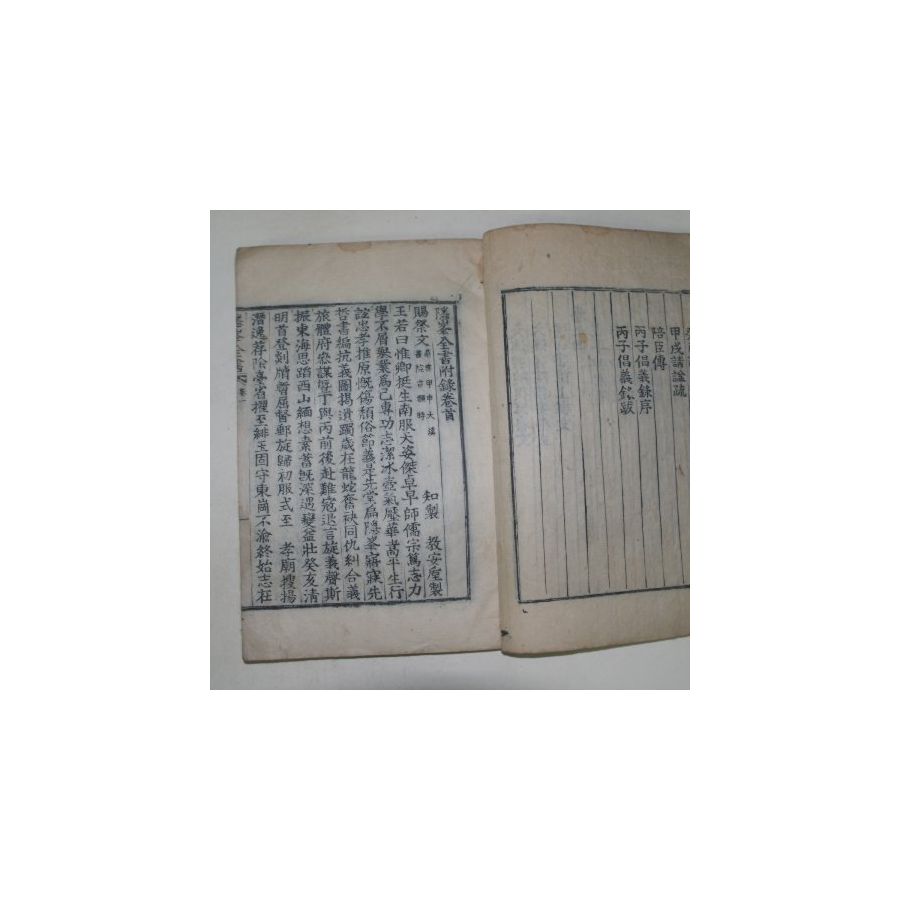 甲戌請謚疏
陪臣傳
丙子倡義錄序
丙子倡義錄跋
隱峯全書附錄卷首
賜祭文
知製 教安 製
王若曰惟卿挺生南服天姿傑卓早師儒宗篤志力
學不屑擧業爲己專功志潔冰壺氣壓華嵩平生行
詮忠孝推原慨傷頹俗節義是先堂扁隱峯寤寐先
哲書編抗義圖揭遺躅歲在龍蛇奮袂同仇糾合義
旅體府 謀曁丁與丙前後赴難寇退言旋義聲斯
振東海思蹈西山緬想素蓄旣深遇變益壯癸亥淸
明首登剡牘暫屈督郵旋歸初服式至 孝廟搜揚
潛逸荐除 擢至緋玉固守東崗不渝終始志在